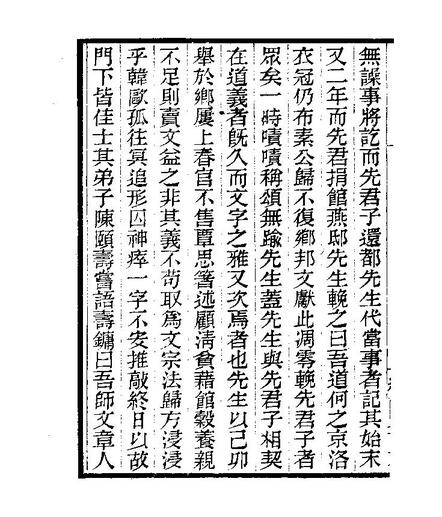 無譟事將訖而先君子還都先生代當事者記其始末
又二年而先君捐館燕邸先生輓之曰吾道何之京洛
衣冠仍布素公歸不復鄉邦文獻此凋零輓先君子者
眾矣一時嘖嘖稱頌無踰先生蓋先生與先君子相契
在道義者旣久而文字之雅又次焉者也先生以己卯
舉於鄉屢上春官不售覃思箸述顧淸貧藉館穀養親
不足則賣文益之非其義不苟取爲文宗法歸方浸浸
乎韓歐孤往冥追形囚神瘁一字不安推敲終日以故
門下皆佳士其弟子陳頤壽嘗語壽鏞曰吾師文章人